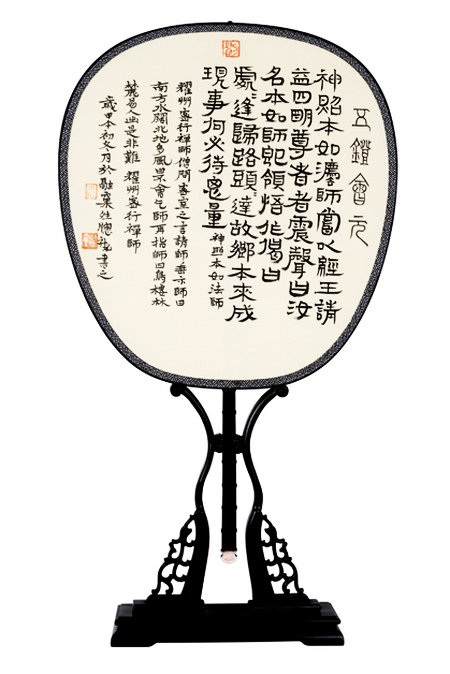 五鐙會元
神照本如灋師嘗以經王請
益四明尊者者震聲曰汝
名本如師即領悟作偈曰
處〻逢歸路頭〻達故鄉本來成
現事何必待思量 神照本如法師
耀州密行禪師僧問密室之言請師垂示師曰
南方水闊北地多風曰不會乞師再指師曰鳥棲林
麓易人出是非難 耀州密行禪師
歲甲午初冬月於融 書之